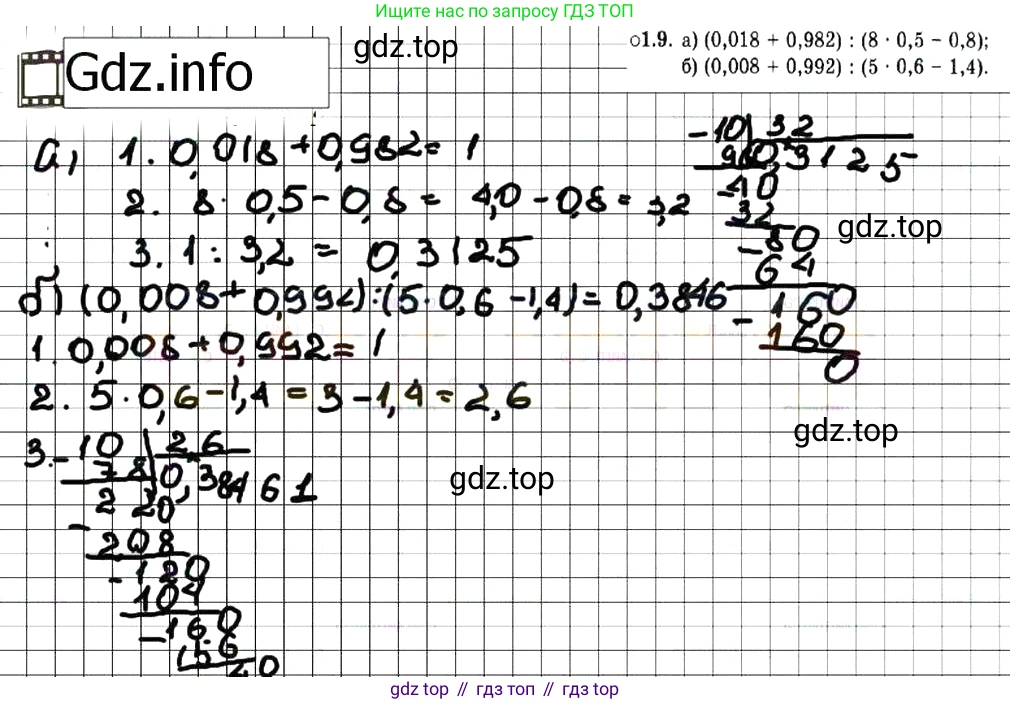 Ищите нас по запросу ГДЗ ТОП
gdz.top
Gdz.info
01.9. а) (0,018 + 0,982) : (8 · 0,5 − 0,8);
б) (0,008 + 0,992) : (5 · 0,6 − 1,4).
а) 1. 0,018 + 0,982 = 1
2. 8 · 0,5 − 0,8 = 4,0 − 0,8 = 3,2
3. 1 : 3,2 = 0,3125
−10 32
96 0,3125
−40
32
−80
64
−160
160
0
gdz.top
б) (0,008 + 0,992) : (5 · 0,6 − 1,4) = 0,3846
1. 0,008 + 0,992 = 1
2. 5 · 0,6 − 1,4 = 3 − 1,4 = 2,6
gdz.top
3. −10 26
78 0,38461
220
−208
−120
104
−160
156
40
gdz.top
gdz.top // гдз топ // гдз топ